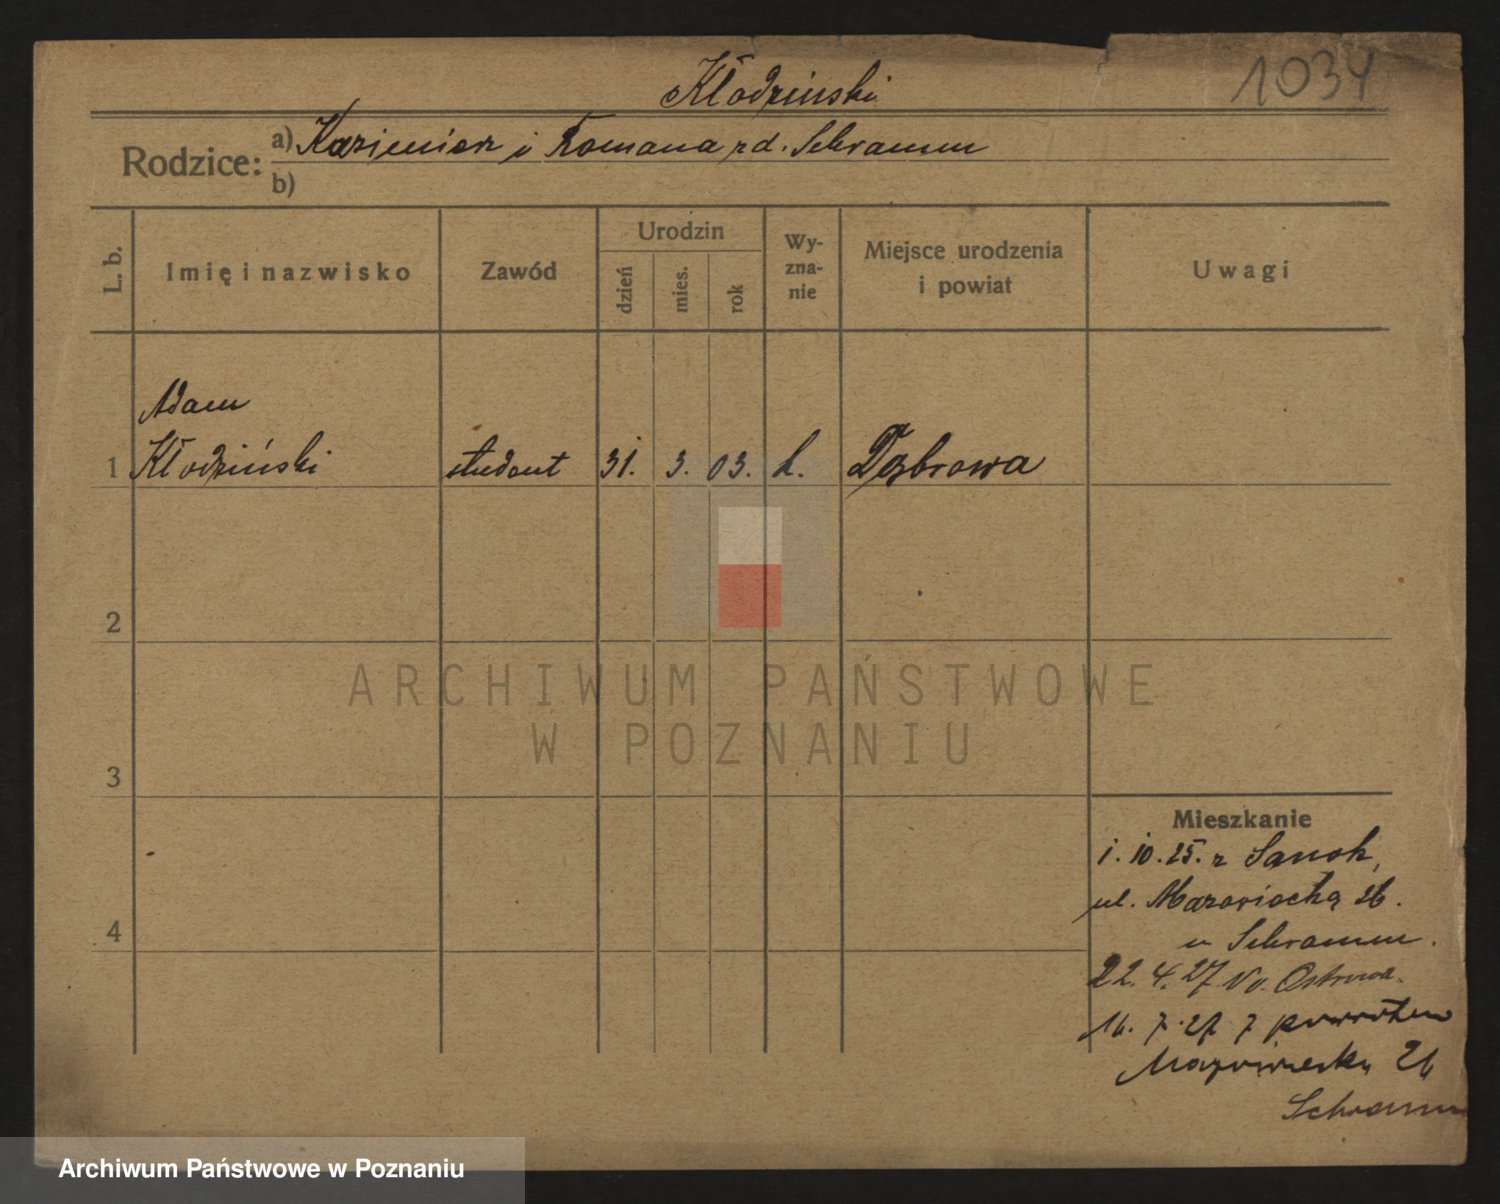 Kłodziński
1034
Rodzice:
a) Kazimierz i Romana rd. Schramm
b)
L. b.
Imię i nazwisko
Zawód
Urodzin
dzień
mies.
rok
Wy-
zna-
nie
Miejsce urodzenia
i powiat
Uwagi
Adam
1 Kłodziński student 31. 3. 03. k. Dąbrowa
2
3
4
ARCHIWUM PAŃSTWOWE
W POZNANIU
Mieszkanie
1.10.25. z Sanok,
ul. Mazowiecka 26.
u Schramm.
22.4.27 Ostrowa.
16.7.27 z powrotem
Mazowiecka 26
Schramm
Archiwum Państwowe w Poznaniu